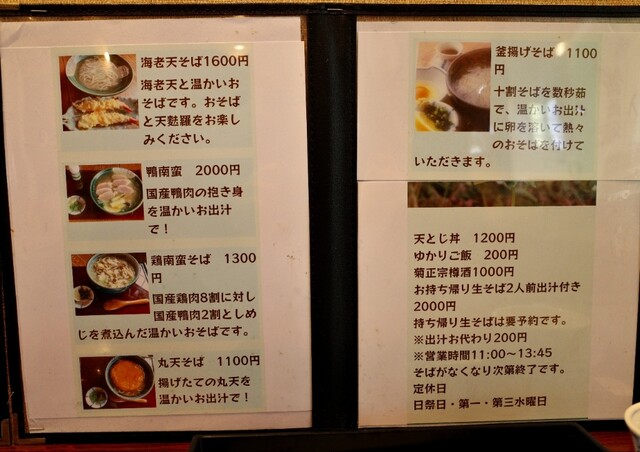 海老天そば1600円
海老天と温かいお
そばです。おそば
と天麩羅をお楽し
みください。
鴨南蛮　2000円
国産鴨肉の抱き身
を温かいお出汁
で！
鶏南蛮そば　1300
円
国産鶏肉8割に対し
国産鴨肉2割としめ
じを煮込んだ温かいおそばです。
丸天そば　1100円
揚げたての丸天を
温かいお出汁で！
釜揚げそば　1100
円
十割そばを数秒茹
で、温かいお出汁
に卵を溶いて熱々
のおそばを付けて
いただきます。
天とじ丼　1200円
ゆかりご飯　200円
菊正宗樽酒1000円
お持ち帰り生そば2人前出汁付き
2000円
持ち帰り生そばは要予約です。
※出汁お代わり200円
※営業時間11:00〜13:45
そばがなくなり次第終了です。
定休日
日祭日・第一・第三水曜日